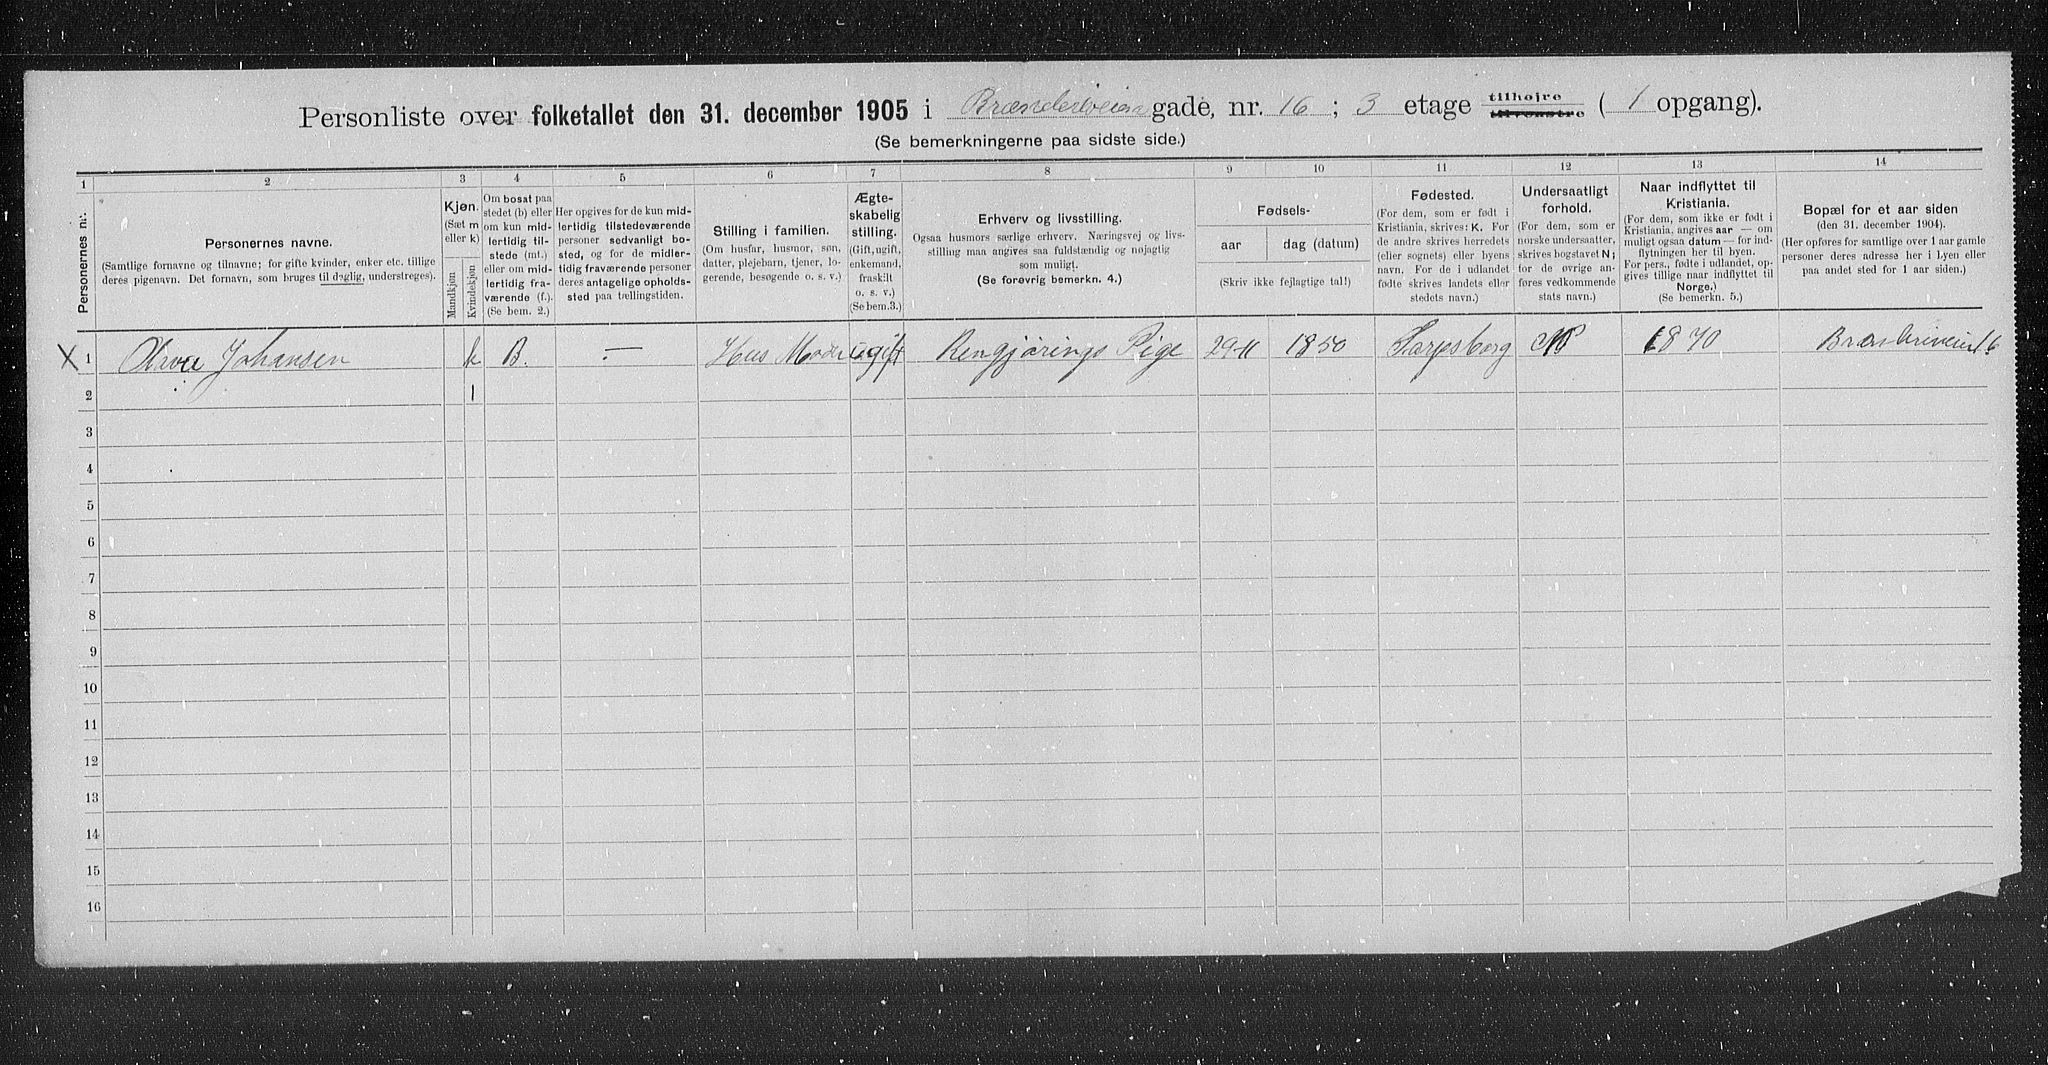 Personliste over folketallet den 31. december 1905 i Brænderiveien gade, nr. 16 ; 3 etage tilhøjre tilvenstre ( 1 opgang).
(Se bemerkningerne paa sidste side.)
1 2 3 4 5 6 7 8 9 10 11 12 13 14
Personernes nr.
Personernes navne.
(Samtlige fornavne og tilnavne; for gifte kvinder, enker etc. tillige
deres pigenavn. Det fornavn, som bruges til daglig, understreges).
Kjøn.
(Sæt m
eller k)
Mandkjøn
Kvindekjøn
Om bosat paa
stedet (b) eller
om kun mid-
lertidig til-
stede (mt.)
eller om mid-
lertidig fra-
værende (f.).
(Se bem. 2.)
Her opgives for de kun mid-
lertidig tilstedeværende
personer sedvanligt bo-
sted, og for de midler-
tidig fraværende personer
deres antagelige opholds-
sted paa tællingstiden.
Stilling i familien.
(Om husfar, husmor, søn,
datter, plejebarn, tjener, lo-
gerende, besøgende o. s. v.)
Ægte-
skabelig
stilling.
(Gift, ugift,
enkemand,
fraskilt
o. s. v.)
(Se bem.3.)
Erhverv og livsstilling.
Ogsaa husmors særlige erhverv. Næringsvej og livs-
stilling maa angives saa fuldstændig og nøjagtig
som muligt.
(Se forøvrig bemerkn. 4.)
Fødsels-
aar
dag (datum)
(Skriv ikke fejlagtige tal!)
Fødested.
(For dem, som er født i
Kristiania, skrives: K. For
de andre skrives herredets
(eller sognets) eller byens
navn. For de i udlandet
fødte skrives landets eller
stedets navn.)
Undersaatligt
forhold.
(For dem, som er
norske undersaatter,
skrives bogstavet N;
for de øvrige an-
føres vedkommende
stats navn.)
Naar indflyttet til
Kristiania.
(For dem, som ikke er født i
Kristiania, angives aar — om
muligt ogsaa datum — for ind-
flytningen her til byen.
For pers., fødte i udlandet, op-
gives tillige naar indflyttet til
Norge.)
(Se bemerkn. 5.)
Bopæl for et aar siden
(den 31. december 1904).
(Her opføres for samtlige over 1 aar gamle
personer deres adresse her i byen eller
paa andet sted for 1 aar siden.)
X 1 Olava Johansen k B. — Hus Moder ugift Rengjørings Pige 29-11 1850 Sarpsborg N 1870 Brænderiveien 16
2 1
3
4
5
6
7
8
9
10
11
12
13
14
15
16